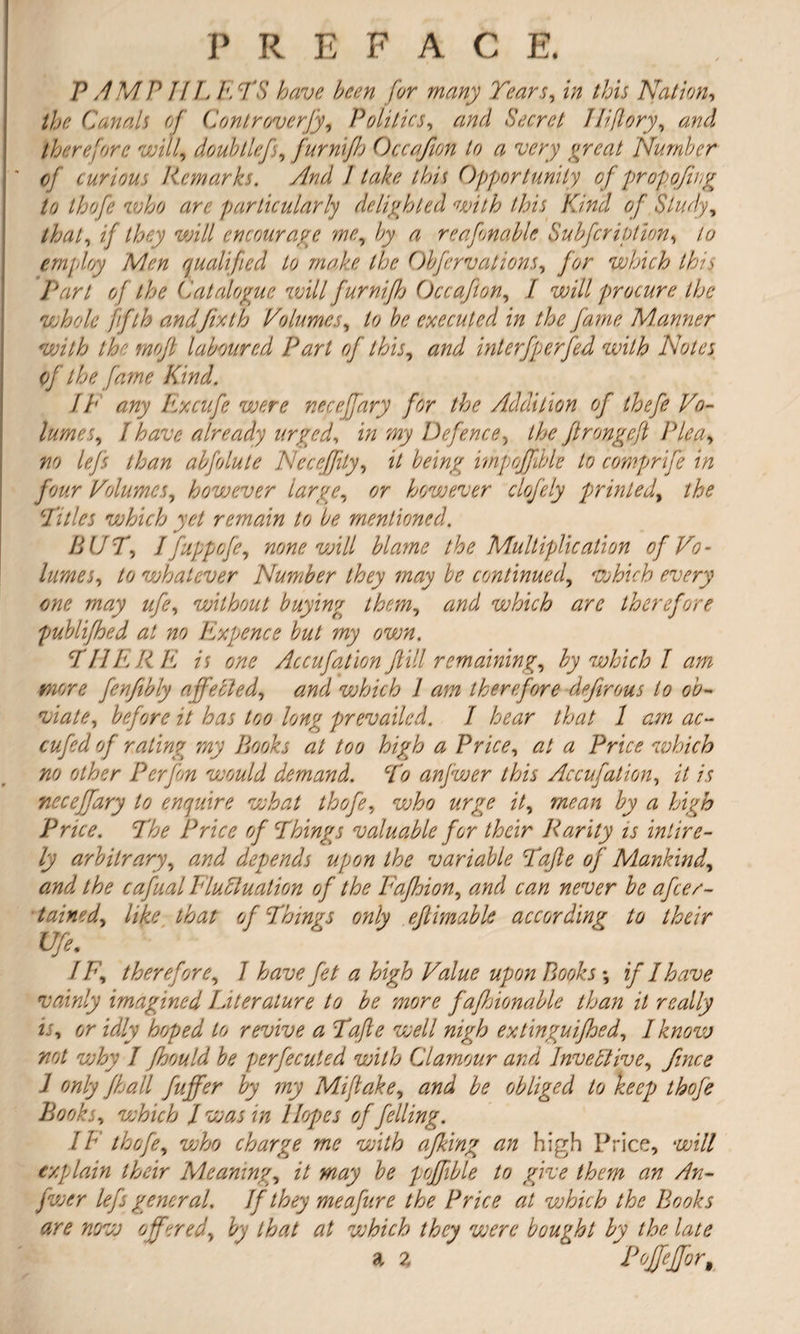 PREFACE.
PAMPHLETS have been for many Years, in this Nation,
the Canals of Controverſy, Politics, and Secret Hiſtory, and
therefore will, doubtleſs, furniſh Occaſion to a very great Number
of curious Remarks. And I take this Opportunity of propoſing
to thoſe who are particularly delighted with this Kind of Study,
that, if they will encourage me, by a reaſonable Subſcription, to
employ Men qualified to make the Obſervations, for which this
Part of the Catalogue will furniſh Occaſion, I will procure the
whole fifth and ſixth Volumes, to be executed in the ſame Manner
with the moſt laboured Part of this, and interſperſed with Notes
of the ſame Kind.
IF any Excuſe were neceſſary for the Addition of theſe Vo-
lumes, I have already urged, in my Defence, the ſtrongeſt Plea,
no leſs than abſolute Neceſſity, it being impoſſible to compriſe in
four Volumes, however large, or however cloſely printed, the
Titles which yet remain to be mentioned.
BUT, I ſuppoſe, none will blame the Multiplication of Vo-
lumes, to whatever Number they may be continued, which every
one may uſe, without buying them, and which are therefore
publiſhed at no Expence but my own.
THERE is one Accuſation ſtill remaining, by which I am
more ſenſibly affected, and which I am therefore deſirous to ob-
viate, before it has too long prevailed. I hear that I am ac-
cuſed of rating my Books at too high a Price, at a Price which
no other Perſon would demand. To anſwer this Accuſation, it is
neceſſary to enquire what thoſe, who urge it, mean by a high
Price. The Price of Things valuable for their Rarity is intire-
ly arbitrary, and depends upon the variable Taſte of Mankind,
and the caſual Fluctuation of the Faſhion, and can never be aſcer-
tained, like that of Things only eſtimable according to their
Uſe.
IF, therefore, I have ſet a high Value upon Books; if I have
vainly imagined Literature to be more faſhionable than it really
is, or idly hoped to revive a Taſte well nigh extinguiſhed, I know
not why I ſhould be perſecuted with Clamour and Invective, ſince
I only ſhall ſuffer by my Miſtake, and be obliged to keep thoſe
Books, which I was in Hopes of ſelling.
IF thoſe, who charge me with aſking an high Price, will
explain their Meaning, it may be poſſible to give them an An-
ſwer leſs general. If they meaſure the Price at which the Books
are now offered, by that at which they were bought by the late
a 2 Poſſeſſor,